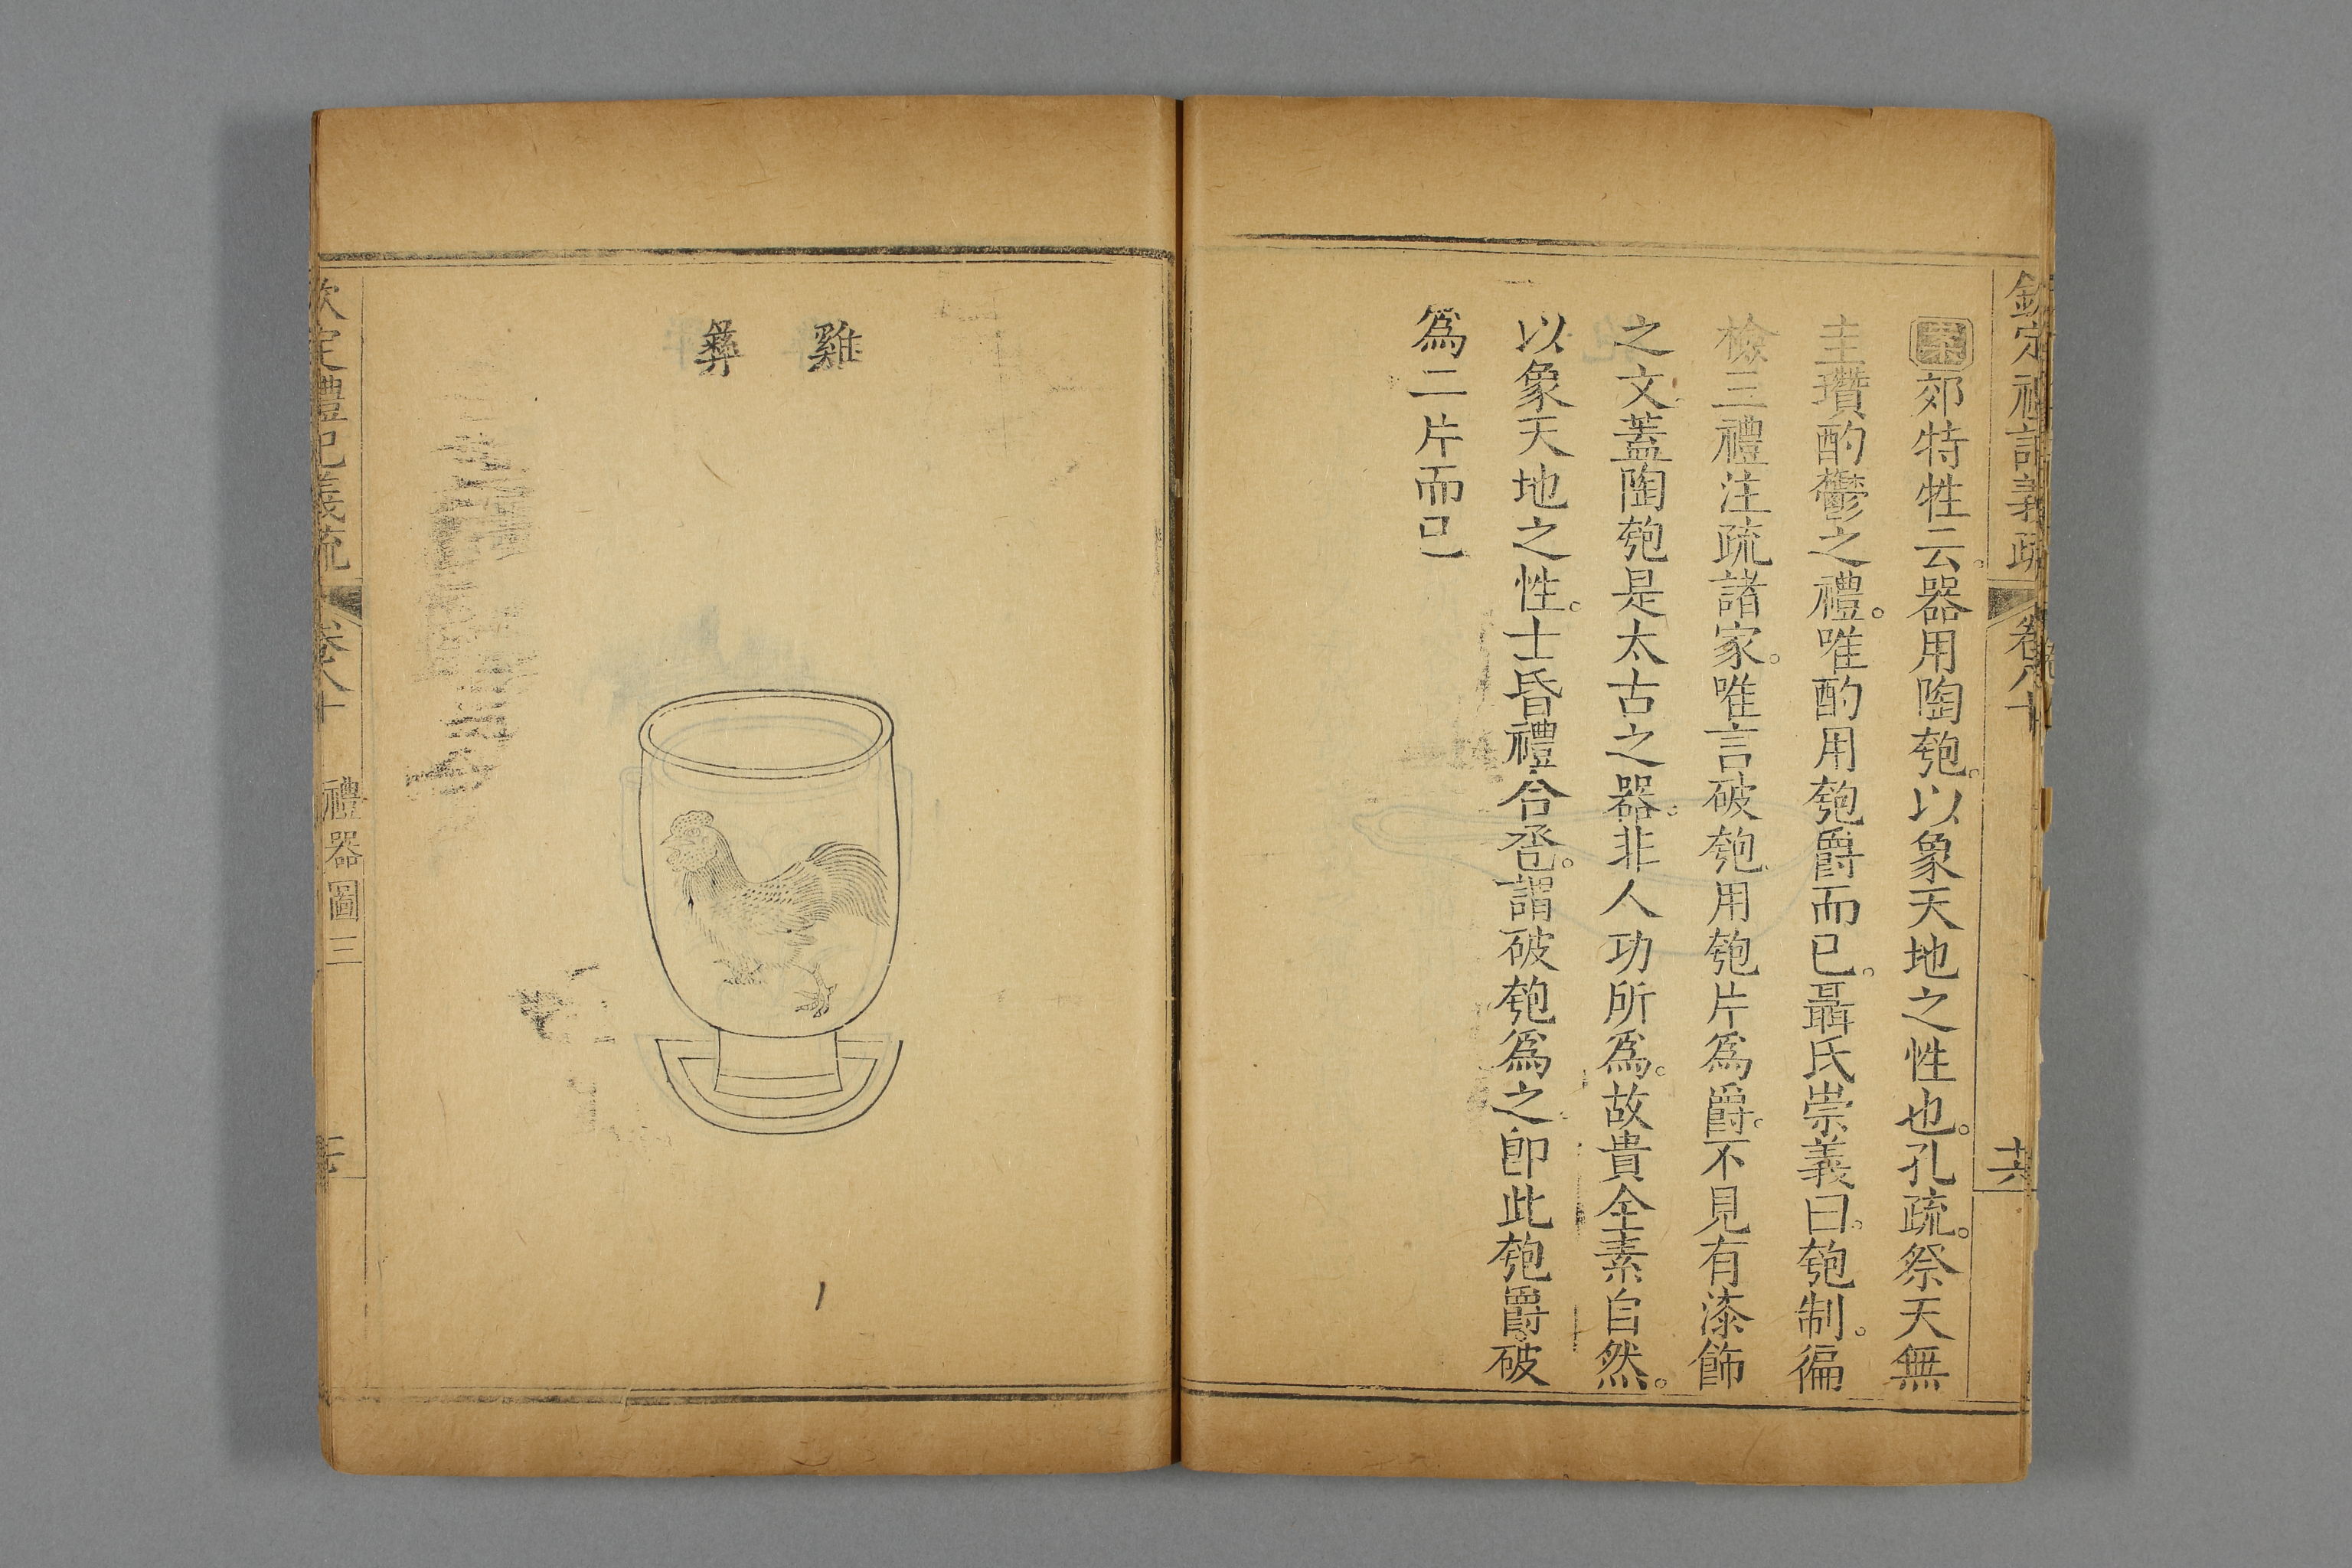 欽定禮記義疏 卷八十 十六
案郊特牲云。器用陶匏。以象天地之性也。孔疏。祭天無
圭瓚酌鬱之禮。唯酌用匏爵而已。聶氏崇義曰。匏制。徧
檢三禮注疏諸家。唯言破匏。用匏片爲爵。不見有漆飾
之文。蓋陶匏是太古之器。非人功所爲。故貴全素自然。
以象天地之性。士昏禮合巹。謂破匏爲之即此匏爵破
爲二片而已
雞彝
欽定禮記義疏 卷八十 禮器圖三